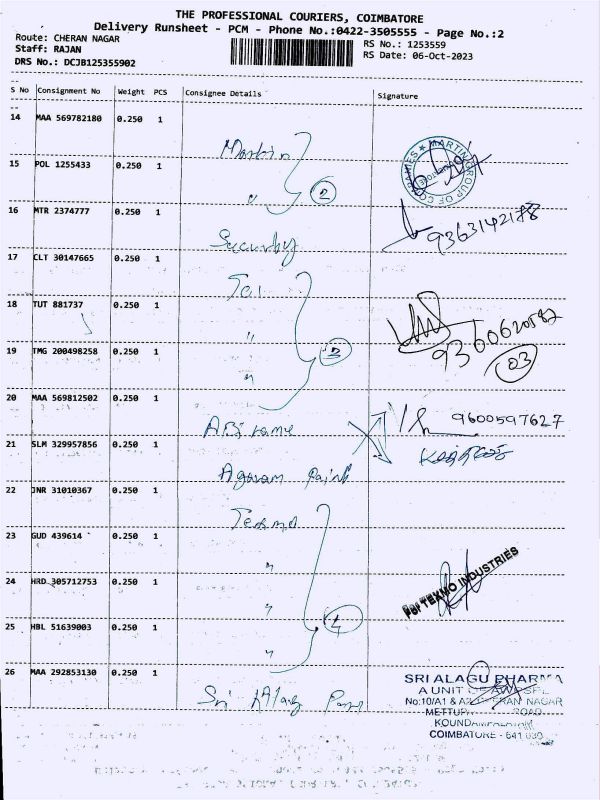 THE PROFESSIONAL COURIERS, COIMBATORE
Delivery Runsheet - PCM - Phone No.:0422-3505555 - Page No.:2
Route: CHERAN NAGAR
RS No.: 1253559
Staff: RAJAN
RS Date: 06-Oct-2023
DRS No.: DCJB125355902
S No Consignment No Weight PCS Consignee Details Signature
14 MAA 569782180 0.250 1
Martin
MARTIN GROUP OF COMPANIES
15 POL 1255433 0.250 1
" 2
16 MTR 2374777 0.250 1
9363142178
Security
17 CLT 30147665 0.250 1
Tai
18 TUT 881737 0.250 1
" 9360620587
3 03
19 TMG 200498258 0.250 1
"
20 MAA 569812502 0.250 1
9600597627
21 SLM 329957856 0.250 1
Agaram Paints
22 JNR 31010367 0.250 1
Texmo
23 GUD 439614 0.250 1
"
TEXMO INDUSTRIES
24 HRD 305712753 0.250 1
"
4
25 HBL 51639003 0.250 1
"
26 MAA 292853130 0.250 1
Sri
SRI ALAGU PHARMA
A UNIT OF
No:10/A1 & CHERAN NAGAR
ROAD
COIMBATORE - 641 030